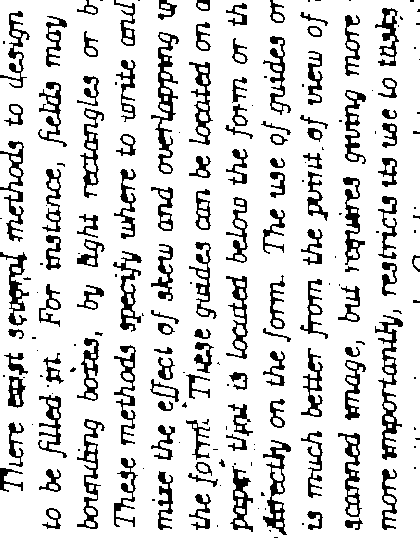 There exist several methods to design
to be filled in. For instance, fields may
bounding boxes, by light rectangles or b
These methods specify where to write and
mize the effect of skew and overlapping
the form. These guides can be located on a
paper that is located below the form or th
directly on the form. The use of guides on
is much better from the point of view of
scanned image, but requires giving more
more importantly, restricts its use to tasks